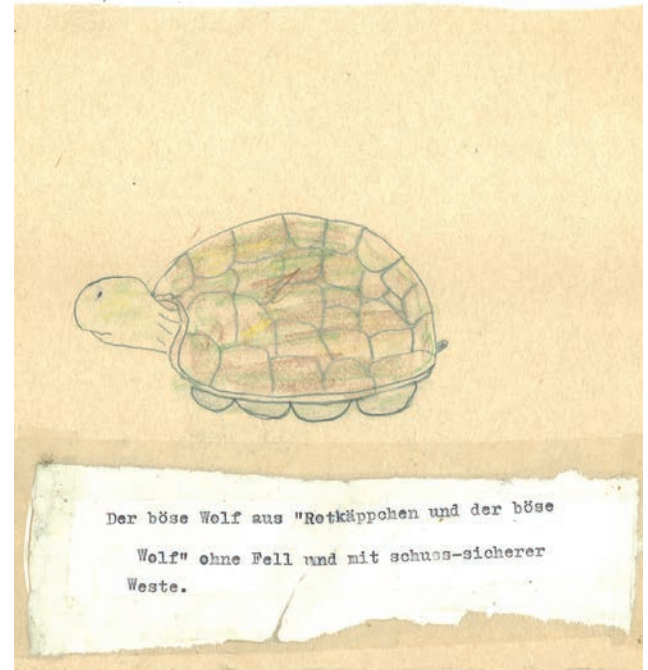 Der böse Wolf aus "Rotkäppchen und der böse
Wolf" ohne Fell und mit schuss-sicherer
Weste.